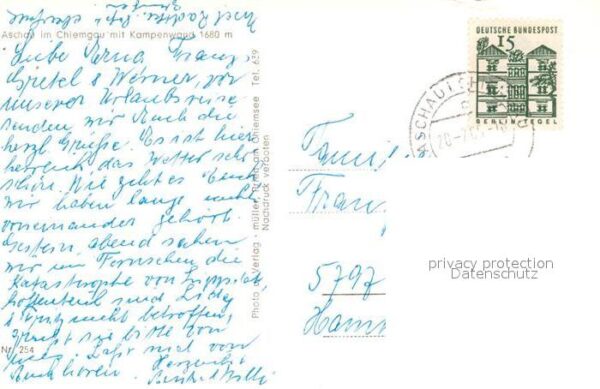 Aschau im Chiemgau mit Kampenwand 1680 m
Liebe Berta Franz,
Gretel & Werner, von
unserer Urlaubsreise
senden wir Euch die
herzl. Grüße. Es ist hier
herrlich, das Wetter sehr
schön. Wie geht es Euch
wir haben lange nichts
voneinander gehört.
Gestern abend sahen
wir im Fernsehen die
Katastrophe von
hoffentlich sind
& Fritz nicht betroffen,
grüßt sie bitte von
uns. Laßt mal von
Euch hören. Herzlichst
Willi
Nr. 254
Photo u. Verlag - müller, Prien am Chiemsee Tel. 639
Nachdruck verboten
DEUTSCHE BUNDESPOST
15
BERLIN-TEGEL
ASCHAU
Fami
Fran
5797
Hamm
privacy protection
Datenschutz